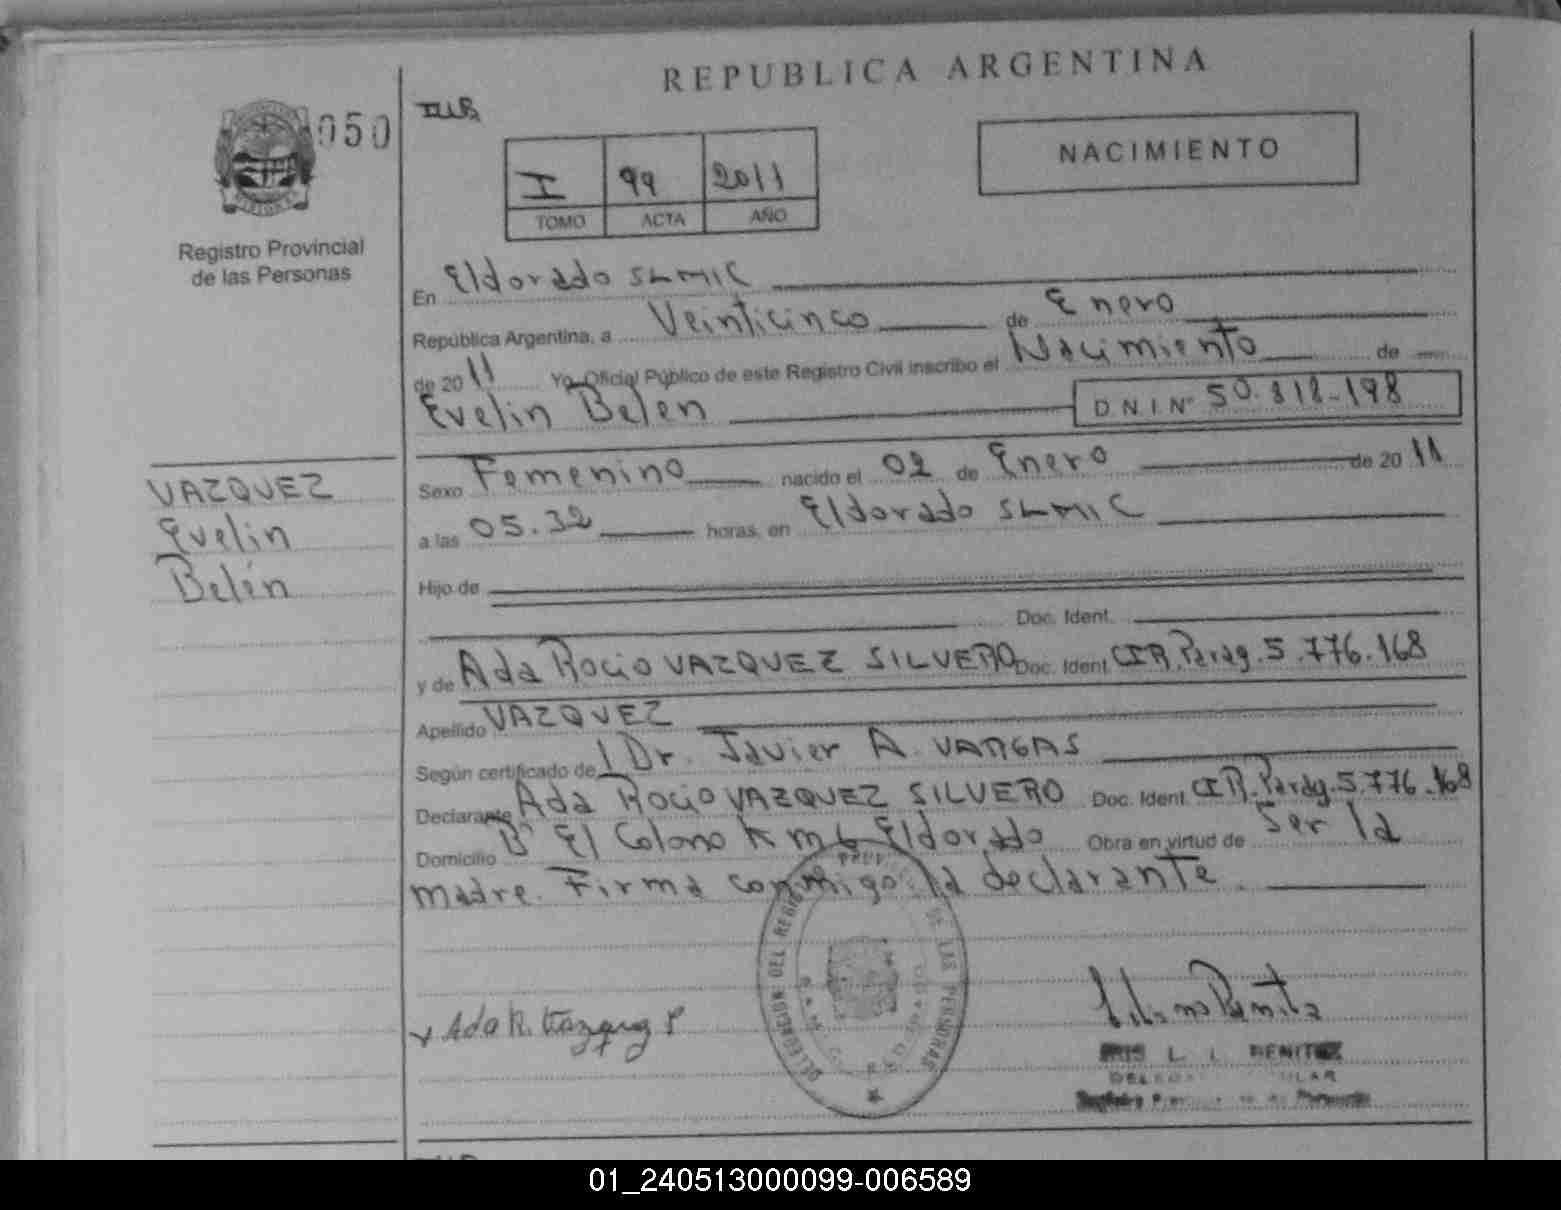 REPUBLICA ARGENTINA
050
NACIMIENTO
I 99 2011
TOMO ACTA AÑO
Registro Provincial
de las Personas
En Eldorado SLMIC
República Argentina, a Veinticinco de Enero
de 2011 Yo Oficial Público de este Registro Civil inscribo el Nacimiento de
Evelin Belen D.N.I.Nº 50.818-198
VAZQUEZ
Evelin
Belén
Sexo Femenino nacido el 02 de Enero de 2011
a las 05.32 horas, en Eldorado SLMIC
Hijo de
Doc. Ident.
y de Ada Rocio VAZQUEZ SILVERO Doc. Ident. CIR.Parag.5.776.168
Apellido VAZQUEZ
Según certificado de Dr. Javier A. VARGAS
Declarante Ada Rocio VAZQUEZ SILVERO Doc. Ident. CIR.Parag.5.776.168
Domicilio Bº El Colono Km 6 Eldorado Obra en virtud de Ser la
madre. Firma conmigo la declarante.
DELEGACION DEL REGISTRO PROV. DE LAS PERSONAS
Ada R. Vazquez S
BENITEZ
01_240513000099-006589